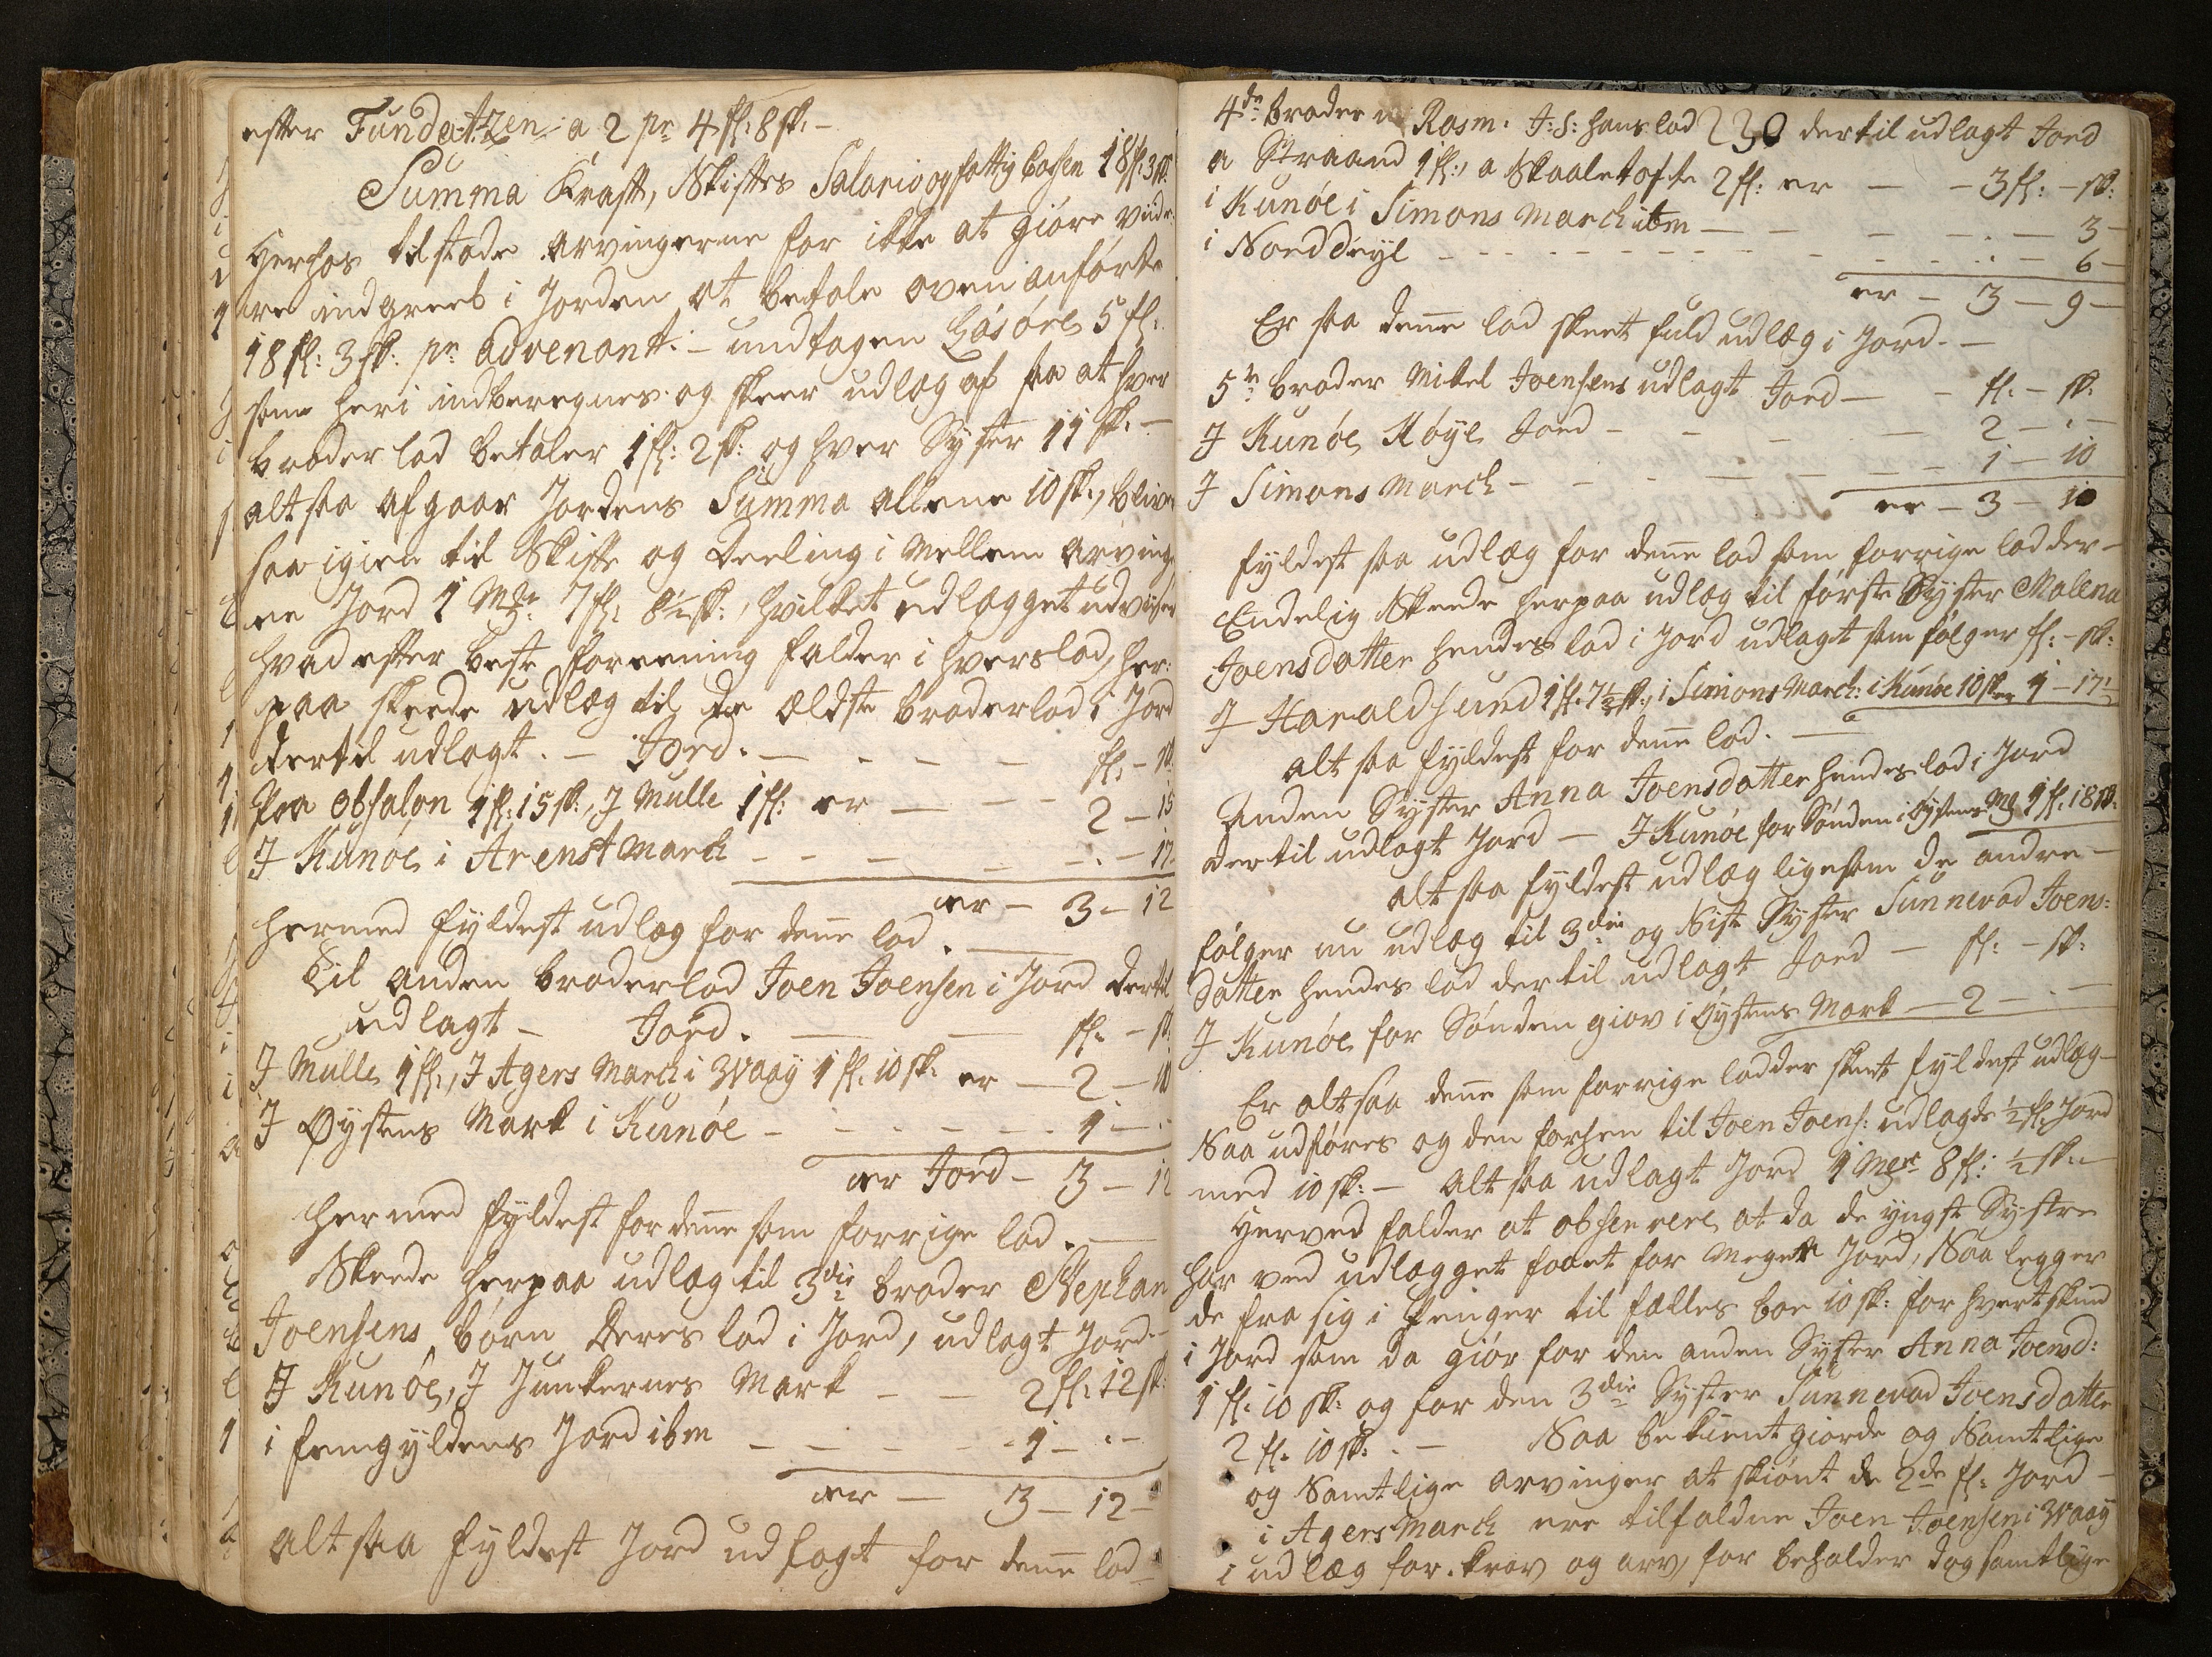 efter Fundatzen a 2 pr 4 fl: 8 sk: –
Summa Kraft, Skiftes Salario og fattig Cassen 18 fl: 3 sk:
Herhos tilstode Arvingerne for ikke at giöre viide-
re indgreeb i Jorden at betale oven anförte
18 fl: 3 sk: pr advenant. – undtagen Lösöre 5 fl:
som heri indberegnes og skeer udlæg af saa at hver
broder lod betaler 1 fl: 2 sk: og hver Syster 11 sk: –
alt saa afgaar Jordens Summa allene 10 sk:, blive
saa igien til Skifte og Deeling i Mellem Arving-
ene Jord 1 Mk 7 fl: 8½ sk:, hvilket udlægget udviser
hvad efter beste foreening falder i hvers lod, her-
paa skeede udlæg til den ældste broderlod i Jord
dertil udlagt. – Jord. – – – – fl: – sk:
Paa Obsalon 1 fl: 15 sk:, J Mulle 1 fl: er – – – 2 – 15
J Kunöe i Arenst March – – – – – . – 17
er – 3 – 12
hermed fyldest udlæg for denne lod. –
Til Anden broderlod Joen Joensen i Jord dertil
udlagt – Jord. – – fl: – sk:
J Mulle 1 fl:, J Agers March i Waay 1 fl: 10 sk: er – 2 – 10
J Øystens Mark i Kunöe – – – – – – 1 – .
er Jord – 3 – 12
hermed fyldest for denne som forrige lod. –
Skeede herpaa udlæg til 3die broder Stephan
Joensens börn Deres lod i Jord, udlagt Jord. –
J Kunöe, J Junkernes Mark – – 2 fl: 12 sk:
i femgyldens Jord ibm – – – – – 1 – . –
er – 3 – 12 –
Alt saa fyldest Jord udlagt for denne lod –
4de broder Rasm: J: S: hans lod 230 dertil udlagt Jord
a Straand 1 fl:, a Skaaletofte 2 fl: er – – 3 fl: – sk:
i Kunöe i Simons March ibm – – – – . – 3 –
i Norddeyl – – – – – – – – – . – 6 –
er – 3 – 9 –
Er saa denne lod skeet fuld udlæg i Jord. –
5te broder Mikel Joensens udlagt Jord – – fl: – sk:
J Kunöe Höye Jord – – – – 2 – . –
J Simons March – – – – – – 1 – 10
er – 3 – 10
fyldest saa udlæg for denne lod som forrige lodder –
Endelig Skeede herpaa udlæg til förste Syster Malena
Joensdatter hendes lod i Jord udlagt som fölger fl: – sk:
J Haraldsund 1 fl: 7½ sk:, i Simons March: i Kunöe 10 sk er 1 – 17½
alt saa fyldest for denne lod. –
Anden Syster Anna Joensdatter hendes lod i Jord
dertil udlagt Jord – J Kunöe for Sönden i Öystens M 1 fl: 18 sk:
alt saa fyldest udlæg ligesom de andre –
fölger nu udlæg til 3die og Sist Syster Sunnevad Joens-
datter hendes lod dertil udlagt Jord – fl: – sk:
J Kunöe for Sönden giov i Öystens Mark – 2 – . –
Er alt saa denne som forrige lodder skeet fyldest udlæg –
Saa udföres og den forhen til Joen Joens: udlagde ½ fl: Jord
med 10 sk: – alt saa udlagt Jord 1 Mk 8 fl: ½ sk: –
Herved falder at observere at da de yngst Systre
har ved udlægget faaet for Meget Jord, Saa legger
de fra sig i Penger til fælles boe 10 sk: for hvert skind
i Jord som da giör for den anden Syster Anna Joensd:
1 fl: 10 sk: og for den 3die Syster Sunnevad Joensdatter
2 fl: 10 sk: . – Saa bekient giorde og Samtlige
og Samtlige arvinger at skiönt de 2de fl: Jord –
i Agers March ere tilfaldne Joen Joensen i Waay
i udlæg for krav og arv, for beholder dog samtlige